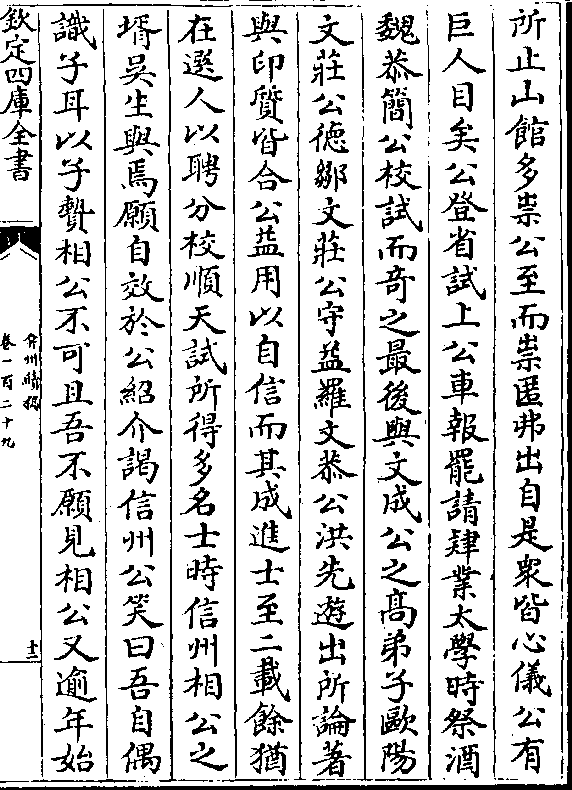 所止山館多祟公至而祟匿弗出自是衆皆心儀公有
巨人目矣公登省試上公車報罷請肄業太學時祭酒
魏恭簡公校試而奇之最後與文成公之髙弟子歐陽
文莊公德鄒文莊公守益羅文恭公洪先遊出所論著
與印質皆合公益用以自信而其成進士至二載餘猶
在選人以聘分校順天試所得多名士時信州相公之
壻吳生與焉願自效於公紹介謁信州公笑曰吾自偶
識子耳以子贄相公不可且吾不願見相公又逾年始
欽定四庫全書
弇州續稿
卷一百二十九
十二